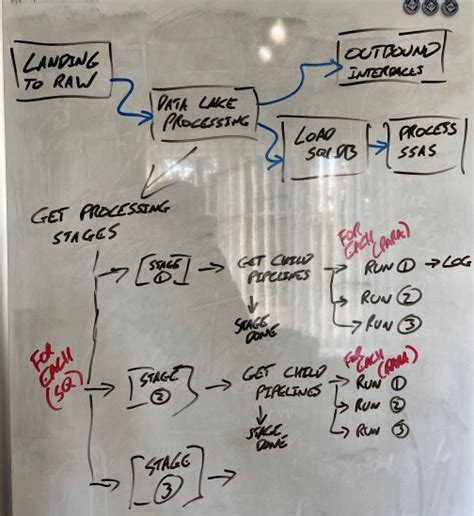 LANDING
TO RAW
OUTBOUND
INTERFACES
DATA LAKE
PROCESSING
LOAD
SQLDB
PROCESS
SSAS
GET PROCESSING
STAGES
FOR
EACH
(SQ)
STAGE
1
GET CHILD
PIPELINES
STAGE
DONE
FOR
EACH
(PARA)
RUN 1 → LOG
RUN 2
RUN 3
STAGE
2
GET CHILD
PIPELINES
STAGE
DONE
FOR
EACH
(PARA)
RUN 1
RUN 2
RUN 3
STAGE
3